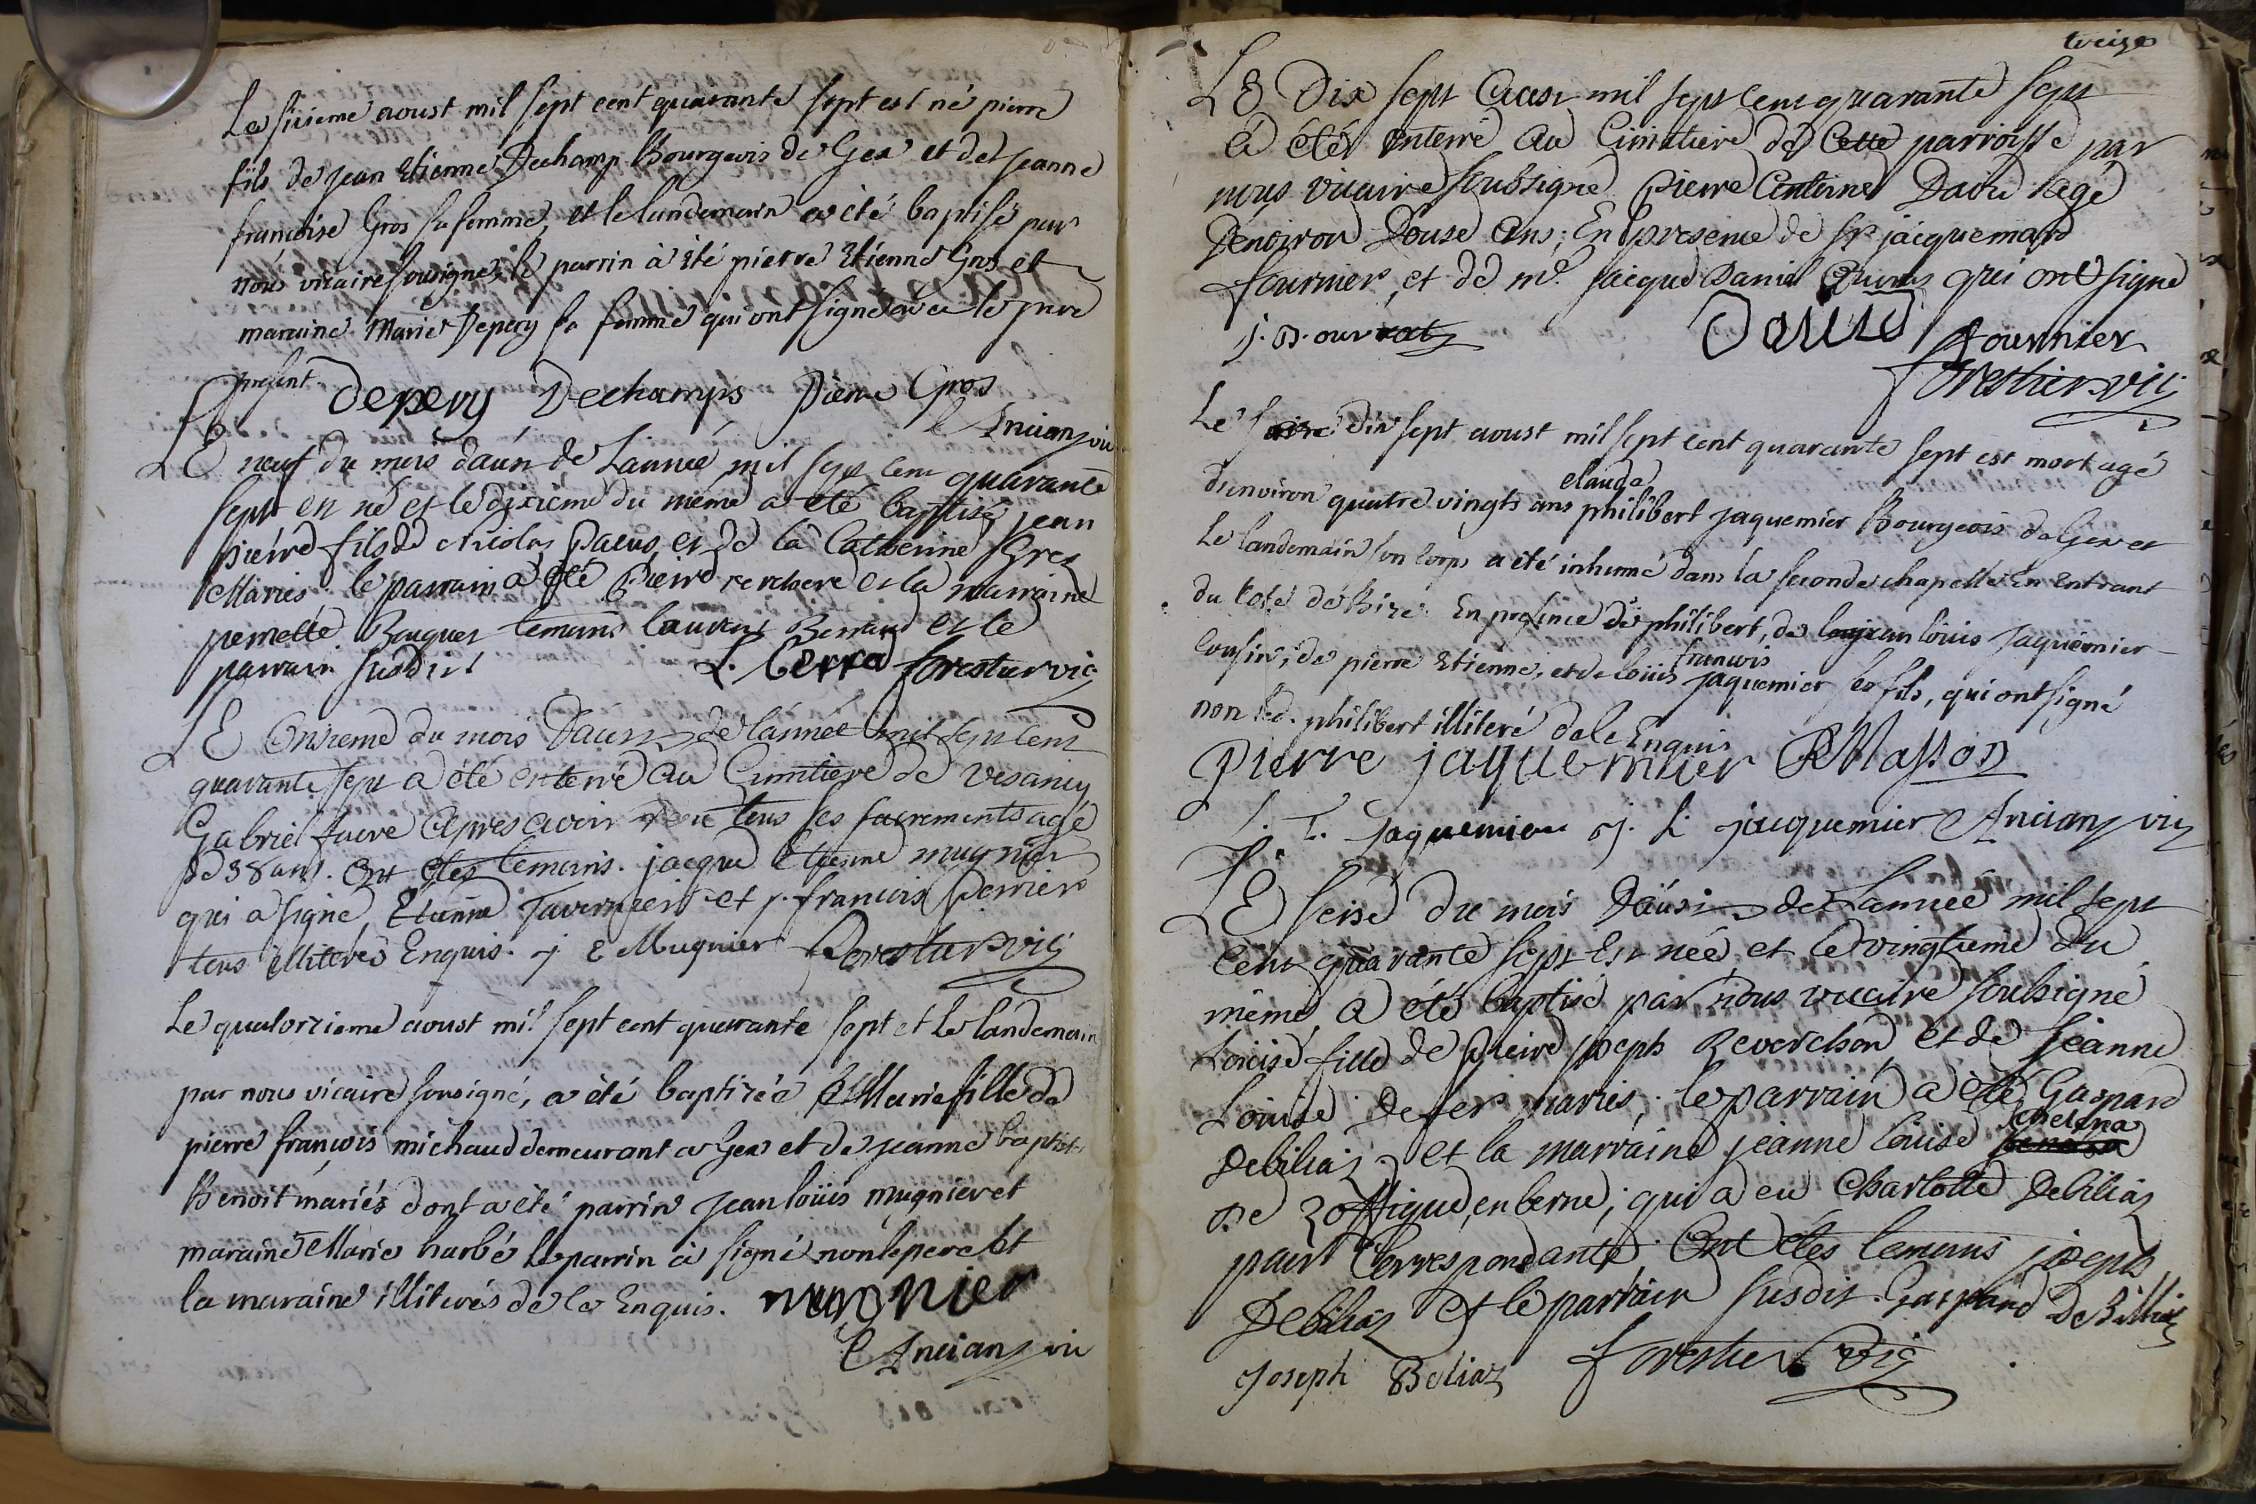 Le sixieme aoust mil sept cent quarante sept est né pierre
fils de jean Etienne Dechamp Bourgeois de Gex et de jeanne
francoise Gros sa femme, et le landemain a été baptisé par
nous vicaire sousigné, le parrin à été pierre Etienne Gros et
maraine Marie Depery sa femme qui ont signé avec le pere
present. depery Dechamps Pierre Gros
Ancian vic
LE neuf du mois daust de L'année mil sept cent quarante
sept est né et le dixieme du même a eté baptisé jean
pierre fils de Nicolas Pacus et de la Catherine Gros
Mariés le parrain a été Pierre rerchere et la marraine
pernette Bouquer temoins laurens Berrard et le
parrain susdit L. berra forestier vic
LE Onzieme du mois Daust de l'année mil sept cent
quarante sept a été enterré au Cimitiere de vesancy
Gabriel favre apres avoir reçu tous ses sacrements agé
de 38 ans. Ont etes temoins. jacque etienne mugnier
qui a signe Etienne Tavernier et j. francois perrier
tous illiteres Enquis. j E Mugnier forestier vic
Le quatorzieme aoust mil sept cent quarante sept et le landemain
par nous vicaire sousigné, a été baptizée Marie fille de
pierre françois michaud demeurant a Gex et de jeanne baptiste
Benoit mariés dont a été parrin jean loüis mugnier et
maraine Marie barbé le parrin a signé non le pere et
la maraine illiterés de ce Enquis. mugnier
Ancian vic
treize
LE Dix sept Aust mil sept cent quarante sept
a été enterré au Cimitiere de Cette parroisse par
nous vicaire soubsigné Pierre Antoine David agé
denviron Douse ans; En presence de sr. jacquemard
fournier, et de mr. jacque Daniel qui ont signé
j. D. ourvat David fournier
forestier vic
Le dix sept aoust mil sept cent quarante sept est mort agé
d'environ quatre vingts ans claude philibert jaquemier Bourgeois de Gex et
Le landemain son corps a été inhumé dans la seconde chapelle En Entrant
du costé de bize. En presence de philibert, de jean loüis jaquemier
cousin, de pierre Etienne, et de loüis francois jaquemier ses fils, qui ont signé
non led. philibert illiteré de ce Enquis
pierre jaquemier Masson
L. F. jaquemier J. L. jacquemier Ancian vic
LE seise du mois Daüst de L'année mil sept
cent quarante sept Est née et le vingtieme du
même a été baptisé par nous vicaire soubsigné
Loüise fille de Pierre joseph Reverchon et de jeanne
Loüise defer mariés; le parrain a été Gaspard
Debiliaz et la marraine jeanne loüise
de Zoffigue en berne; qui a eu Charlotte Debiliaz
pour Correspondante Ont étés temoins joseph
Debiliaz et le parrain susdit. Gaspard De Billiaz
Joseph Beliaz forestier vic